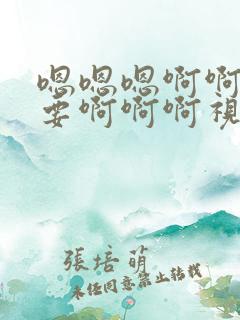 嗯嗯嗯啊啊
要啊啊啊視
張培萌
未经同意禁止转载